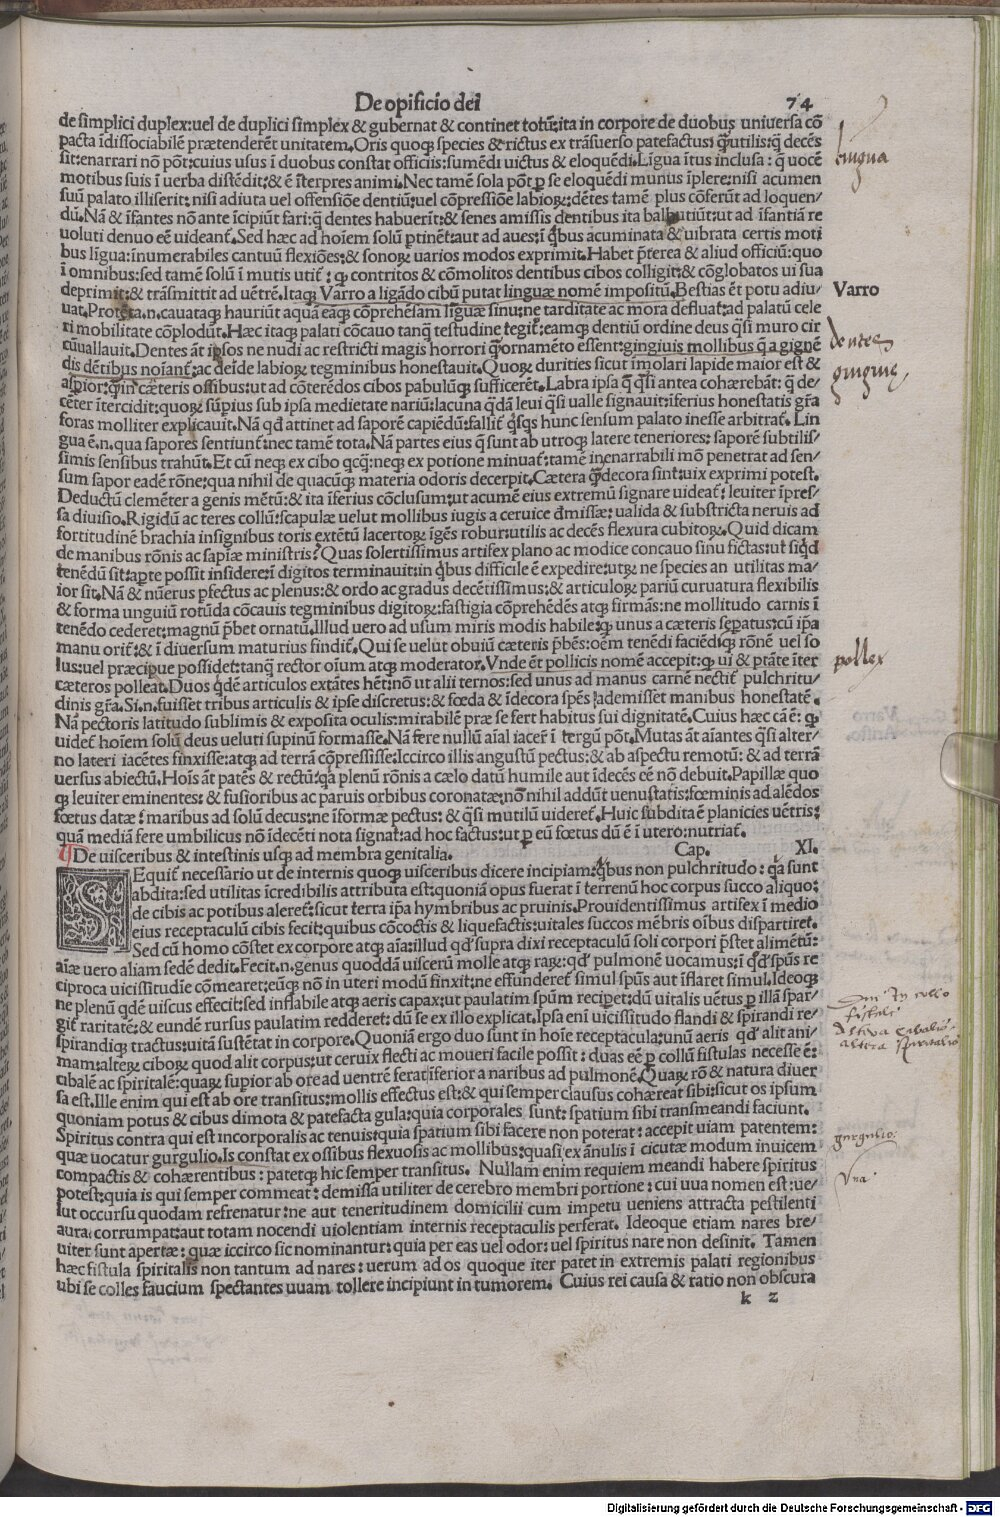 De opificio dei 74
de simplici duplex:uel de duplici simplex & gubernat & continet totū:ita in corpore de duobus uniuersa cō
pacta īdissociabilē prætenderēt unitatem.Oris quoq; species & rictus ex trāsuerso patefactus: q̄utilis:q̄ decēs
sit:enarrari nō pōt:cuius usus ī duobus constat officiis:sumēdi uictus & eloquēdi.Līgua ītus inclusa : q̄ uocē
motibus suis ī uerba distēdit:& ē īterpres animi.Nec tamē sola pōt p se eloquēdi munus īplere:nisi acumen
suū palato illiserit: nisi adiuta uel offensiōe dentiū:uel cōpressiōe labioꝝ:dētes tamē plus cōferūt ad loquen/
dū.Nā & īfantes nō ante īcipiūt fari:q̄ dentes habuerīt:& senes amissis dentibus ita balbutiūt:ut ad īfantiā re
uoluti denuo eē uideant̄.Sed hæc ad hoīem solū ptinēt:aut ad aues:ī q̄bus acuminata & uibrata certis moti
bus līgua:īnumerabiles cantuū flexiōes:& sonoꝝ uarios modos exprimit.Habet p̄terea & aliud officiū:quo
ī omnibus:sed tamē solū ī mutis utit̄ : qꝫ contritos & cōmolitos dentibus cibos colligit:& cōglobatos ui sua
deprimit:& trāsmittit ad uētrē.Itaqꝫ Varro a ligādo cibū putat linguæ nomē impositū.Bestias ēt potu adiu/
uat.Protēta.n.cauataqꝫ hauriūt aquā eāqꝫ cōprehēsam līguæ sinu:ne tarditate ac mora defluat:ad palatū cele
ri mobilitate cōplodūt.Hæc itaqꝫ palati cōcauo tanq̄ testudine tegit̄:eamqꝫ dentiū ordine deus q̄si muro cir
cūuallauit.Dentes āt ipsos ne nudi ac restricti magis horrori q̄ornamēto essent:gingiuis mollibus q̄ a gignē
dis dētibus noīant̄:ac deīde labioꝝ tegminibus honestauit.Quoꝝ durities sicut īmolari lapide maior est &
aspior:q̄in cæteris ossibus:ut ad cōterēdos cibos pabulūqꝫ sufficerēt.Labra ipsa q̄ q̄si antea cohærebāt: q̄ de/
cēter ītercidit:quoꝝ sūpius sub ipsa medietate nariū:lacuna q̄dā leui q̄si ualle signauit:īferius honestatis gr̄a
foras molliter explicauit.Nā qd̄ attinet ad saporē capiēdū:fallit̄ q̄sqs hunc sensum palato inesse arbitrat̄. Lin
gua ē.n.qua sapores sentiunt̄:nec tamē tota.Nā partes eius q̄ sunt ab utroqꝫ latere teneriores: saporē subtilis/
simis sensibus trahūt.Et cū neqꝫ ex cibo qcq̄:neqꝫ ex potione minuat̄:tamē inenarrabili mō penetrat ad sen/
sum sapor eadē rōne:qua nihil de quacūqꝫ materia odoris decerpit.Cætera q̄decora sint:uix exprimi potest.
Deductū clemēter a genis mētū:& ita īferius cōclusum:ut acumē eius extremū signare uideat̄: leuiter īpres/
sa diuisio.Rigidū ac teres collū:scapulæ uelut mollibus iugis a ceruice d̄missæ: ualida & substricta neruis ad
fortitudinē brachia insignibus toris extētū lacertoꝝ īgēs robur:utilis ac decēs flexura cubitoꝝ.Quid dicam
de manibus rōnis ac sapiæ ministris? Quas solertissimus artifex plano ac modice concauo sinu fictas:ut siq̄d
tenēdū sit:apte possit insidere:ī digitos terminauit:in q̄bus difficile ē expedire:utꝝ ne species an utilitas ma/
ior sit.Nā & nūerus pfectus ac plenus:& ordo ac gradus decētissimus:& articuloꝝ pariū curuatura flexibilis
& forma unguiū rotūda cōcauis tegminibus digitoꝝ:fastigia cōprehēdēs atqꝫ firmās:ne mollitudo carnis ī
tenēdo cederet:magnū p̄bet ornatū.Illud uero ad usum miris modis habile:qꝫ unus a cæteris sepatus:cū ip̄a
manu orit̄:& ī diuersum maturius findit̄.Qui se uelut obuiū cæteris p̄bēs:oēm tenēdi faciēdiqꝫ rōnē uel so
lus:uel præcipue possidet:tanq̄ rector oīum atqꝫ moderator.Vnde ēt pollicis nomē accepit:qꝫ ui & ptāte īter
cæteros polleat.Duos q̄dē articulos extātes hēt:nō ut alii ternos:sed unus ad manus carnē nectit̄ pulchritu/
dinis gr̄a.Si.n.fuisset tribus articulis & ipse discretus:& fœda & īdecora spēs ademisset manibus honestatē.
Nā pectoris latitudo sublimis & exposita oculis:mirabilē præ se fert habitus sui dignitatē.Cuius hæc cā ē: qꝫ
uidet̄ hoīem solū deus ueluti supinū formasse.Nā fere nullū aīal iacer̄ ī tergū pōt.Mutas āt aīantes q̄si alter/
no lateri iacētes finxisse:atqꝫ ad terrā cōpressisse:Iccirco illis angustū pectus:& ab aspectu remotū: & ad terrā
uersus abiectū.Hoīs āt patēs & rectū:qa plenū rōnis a cælo datū humile aut īdecēs eē nō debuit.Papillæ quo
qꝫ leuiter eminentes: & fusioribus ac paruis orbibus coronatæ:nō nihil addūt uenustatis:fœminis ad alēdos
fœtus datæ : maribus ad solū decus:ne īformæ pectus: & q̄si mutilū uideret̄.Huic subdita ē planicies uētris:
quā mediā fere umbilicus nō īdecēti nota signat:ad hoc factus:ut p eū fœtus dū ē ī utero:nutriat̄.
¶ De uisceribus & intestinis usqꝫ ad membra genitalia. Cap. XI.
SEquit̄ necessario ut de internis quoqꝫ uisceribus dicere incipiam:q̄bus non pulchritudo : qa sunt
abdita:sed utilitas īcredibilis attributa est:quoniā opus fuerat ī terrenū hoc corpus succo aliquo:
de cibis ac potibus aleret̄:sicut terra ip̄a hymbribus ac pruinis.Prouidentissimus artifex ī medio
eius receptaculū cibis fecit:quibus cōcoctis & liquefactis:uitales succos mēbris oībus dispartiret.
Sed cū homo cōstet ex corpore atqꝫ aīa:illud qd̄ supra dixi receptaculū soli corpori p̄stet alimētū:
aīæ uero aliam sedē dedit.Fecit.n.genus quoddā uiscerū molle atqꝫ raꝝ:qd̄ pulmonē uocamus:ī qd̄ spūs re
ciproca uicissitudīe cōmearet:eūqꝫ nō in uteri modū finxit:ne effunderet̄ simul spūs aut īflaret simul.Ideoqꝫ
ne plenū qdē uiscus effecit:sed inflabile atqꝫ aeris capax:ut paulatim spūm reciperet:dū uitalis uētus p illā spar/
git̄ raritatē:& eundē rursus paulatim redderet: dū se ex illo explicat.Ipsa enī uicissitudo flandi & spirandi re/
spirandiqꝫ tractus:uitā sustētat in corpore.Quoniā ergo duo sunt in hoīe receptacula:unū aeris qd̄ alit ani/
mam:alteꝝ ciboꝝ quod alit corpus:ut ceruix flecti ac moueri facile possit : duas eē p collū fistulas necesse ē:
cibalē ac spiritalē:quaꝝ supior ab ore ad uentrē ferat̄:īferior a naribus ad pulmonē.Quaꝝ rō & natura diuer
sa est.Ille enim qui est ab ore transitus:mollis effectus est:& qui semper clausus cohæreat sibi:sicut os ipsum
quoniam potus & cibus dimota & patefacta gula:quia corporales sunt: spatium sibi transmeandi faciunt.
Spiritus contra qui est incorporalis ac tenuis:quia spatium sibi facere non poterat : accepit uiam patentem:
quæ uocatur gurgulio.Is constat ex ossibus flexuosis ac mollibus:quasi ex ānulis ī cicutæ modum inuicem
compactis & cohærentibus : patetqꝫ hic semper transitus. Nullam enim requiem meandi habere spiritus
potest:quia is qui semper commeat : demissa utiliter de cerebro membri portione : cui uua nomen est:ue/
lut occursu quodam refrenatur:ne aut teneritudinem domicilii cum impetu ueniens attracta pestilenti
aura:corrumpat:aut totam nocendi uiolentiam internis receptaculis perferat. Ideoque etiam nares bre/
uiter sunt apertæ: quæ iccirco sic nominantur:quia per eas uel odor: uel spiritus nare non desinit. Tamen
hæc fistula spiritalis non tantum ad nares : uerum ad os quoque iter patet in extremis palati regionibus
ubi se colles faucium spectantes uuam tollere incipiunt in tumorem. Cuius rei causa & ratio non obscura
k 2
lingua
Varro
dentes
gingiuę
pollex
fistule
altera spiritalis
gurgulio
Vua
Digitalisierung gefördert durch die Deutsche Forschungsgemeinschaft - DFG